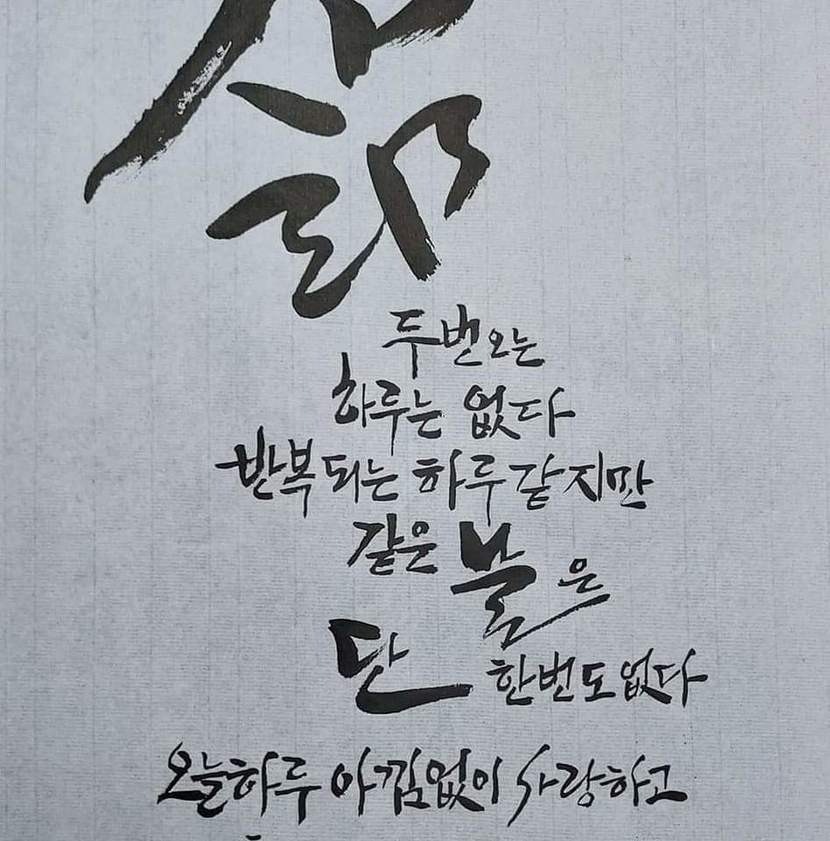 삶
두번오는
하루는 없다
반복되는 하루 같지만
같은 날은
단 한번도 없다
오늘하루 아낌없이 사랑하고